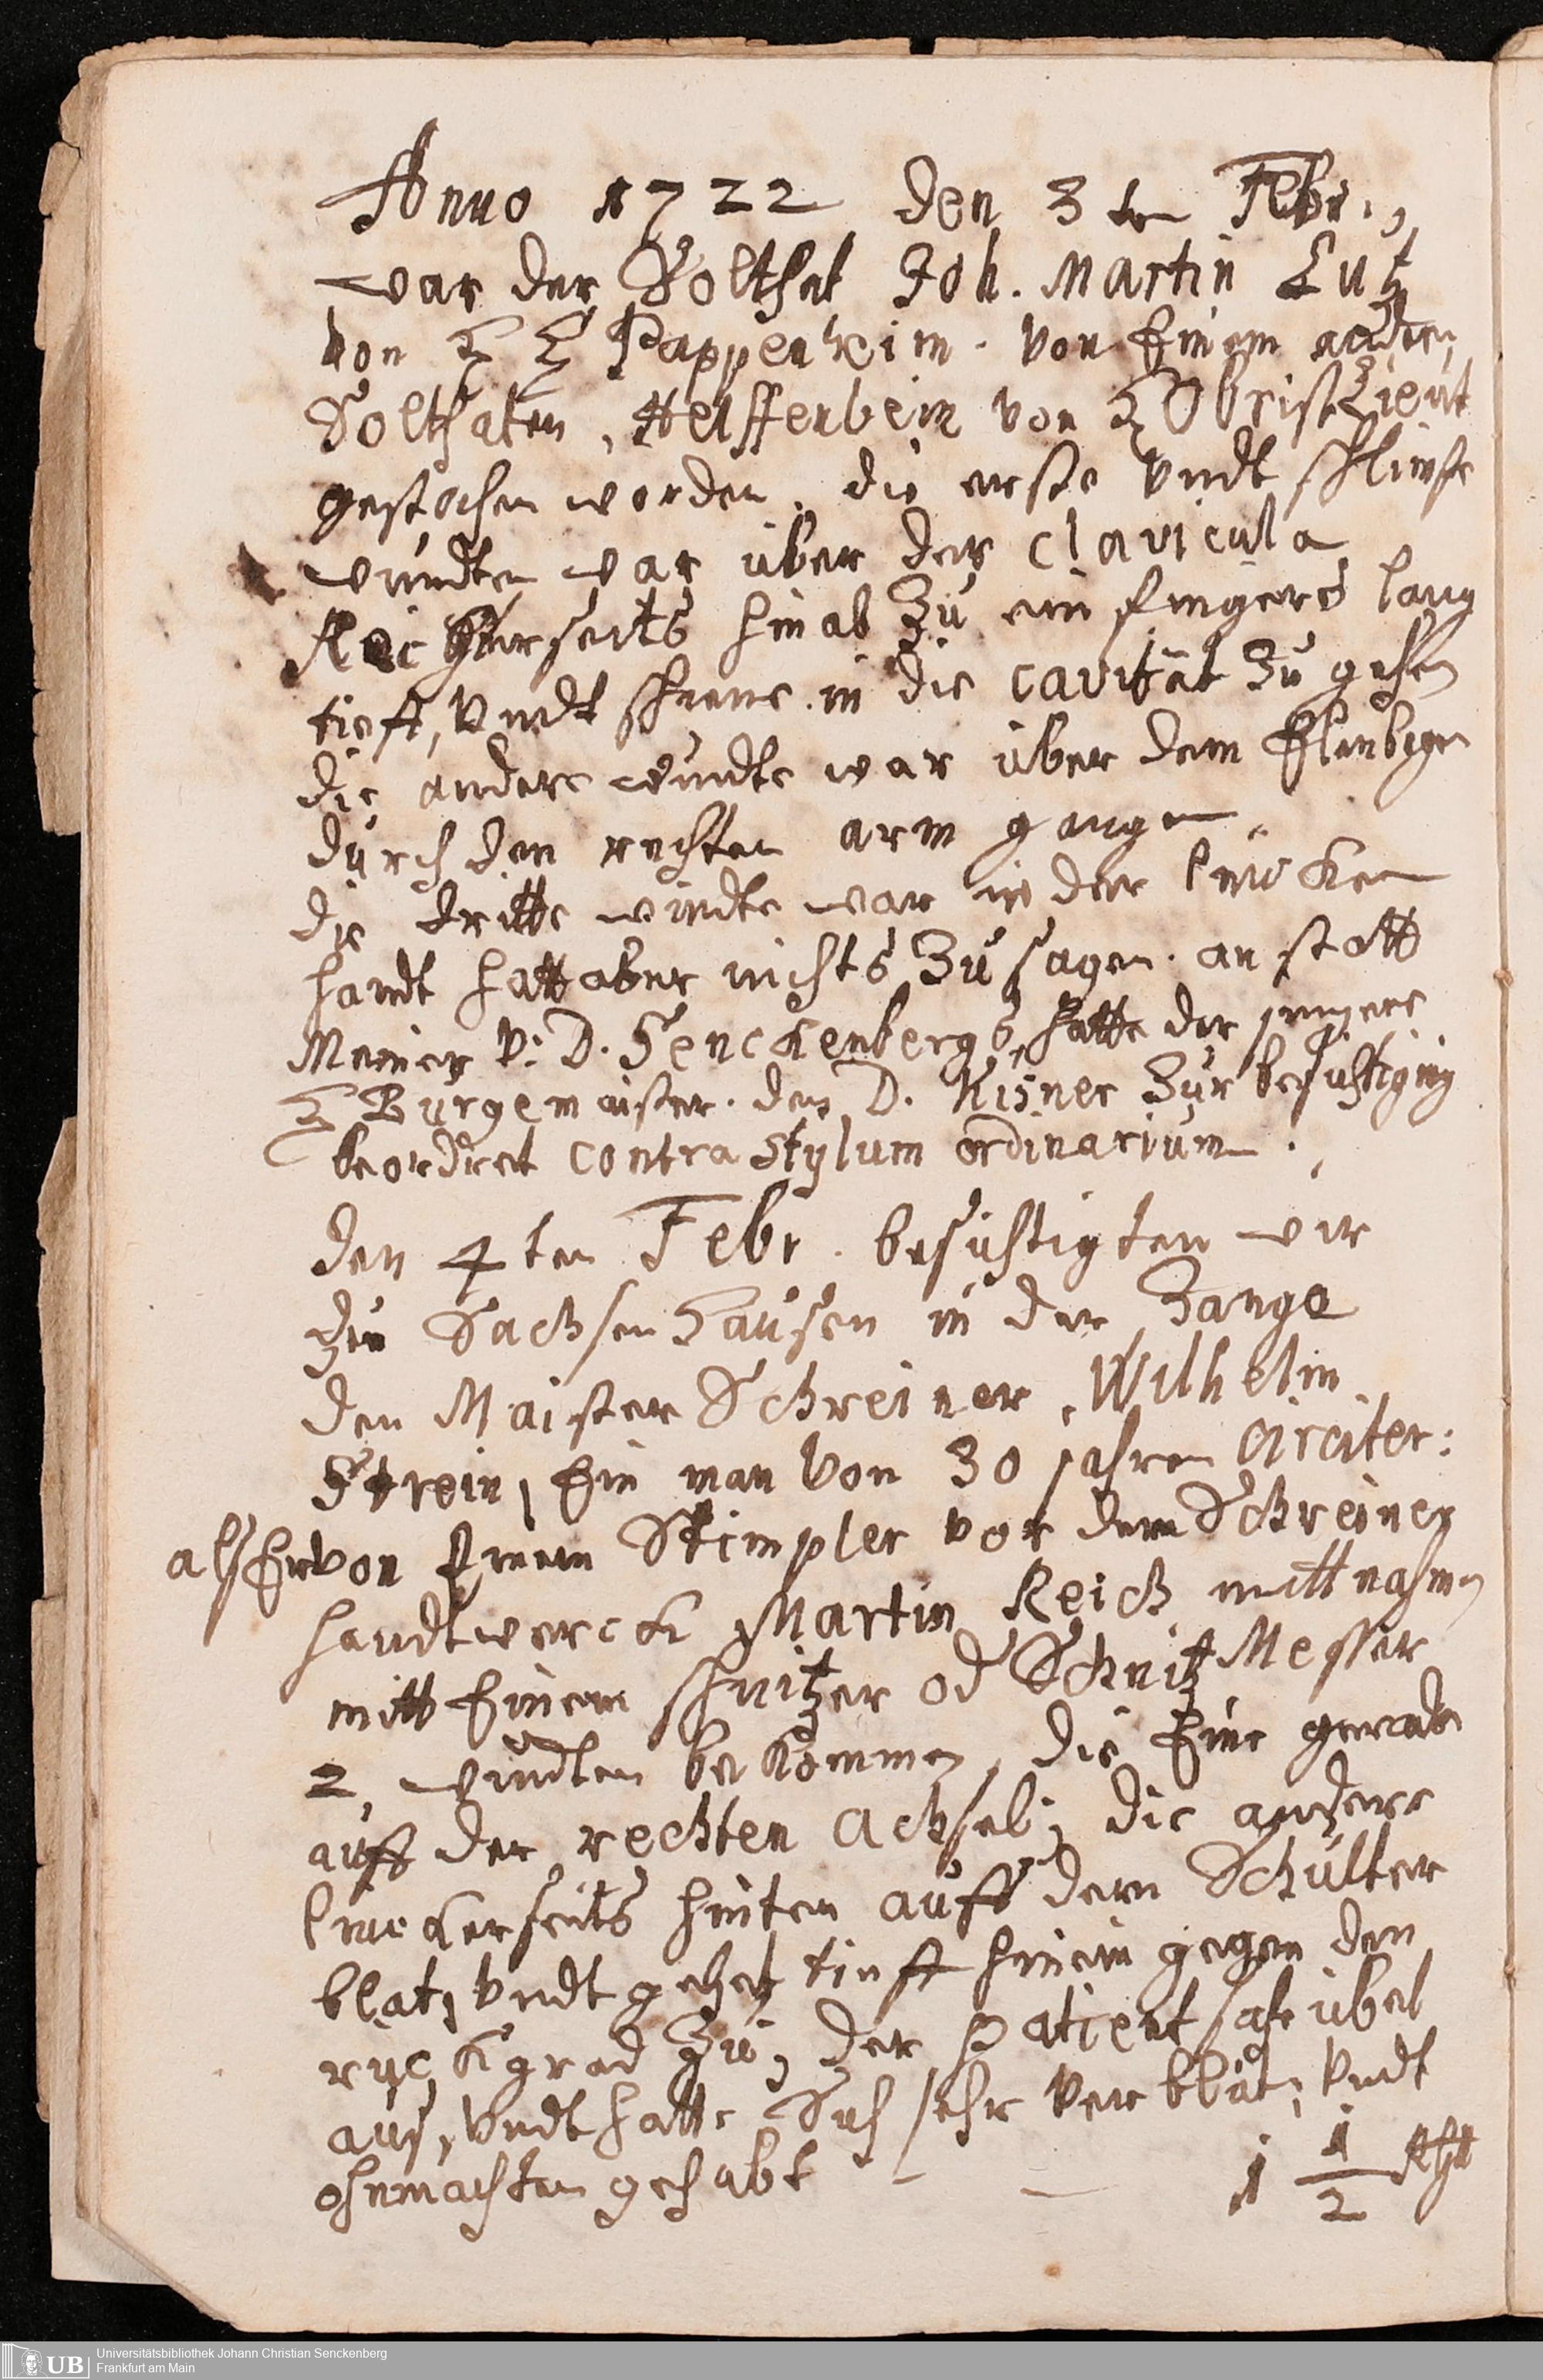 Anno 1722 den 3ten Febr.,
war der Solthat Joh. Martin Lutz
von H Pappenheim. von Einem andern
Solthaten, Helffenbein von H ObristLieut
gestochen worden. die erste Vndt schlimste
wundten war über der clavicula
Rechterseits hinab Zu ein fingers lang
tieff, Vndt schiene in die cavität Zu gehen
die andere wundte war über dem Elenbogen
durch den rechten arm gangen.
die dritte wundte war in der lincken
handt hatt aber nichts Zu sagen. an statt
Meiner v: D. Senckenbergs, hatte der jungere
H Burgemaister. den D. Kisner Zur besichtigung
beordret contra Stylum ordinarium.
den 4ten Febr. besichtigten wir
Zu Sachsenhausen in der Zange
den Maister Schreiner, Wilhelm
Strein, Ein man von 30 jahren circiter:
alß Er von Einem Stimpler vor dem Schreiner
handtwerck Martin Reich mitt nahmen
mitt Einem schnitzer od Schnitz Messer
2, wundten bekommen, die Eine gerade
auff der rechten Achsel; die andere
linckerseits hinten auff dem Schulter
blat, Vndt gehet tieff hinein gegen den
ruckgrad Zu, der patient sahe übel
aus, Vndt hatte Sich sehr verblut, Vndt
ohnmachten gehabt - — 1 1/2 Rth
Universitätsbibliothek Johann Christian Senckenberg
Frankfurt am Main
UB